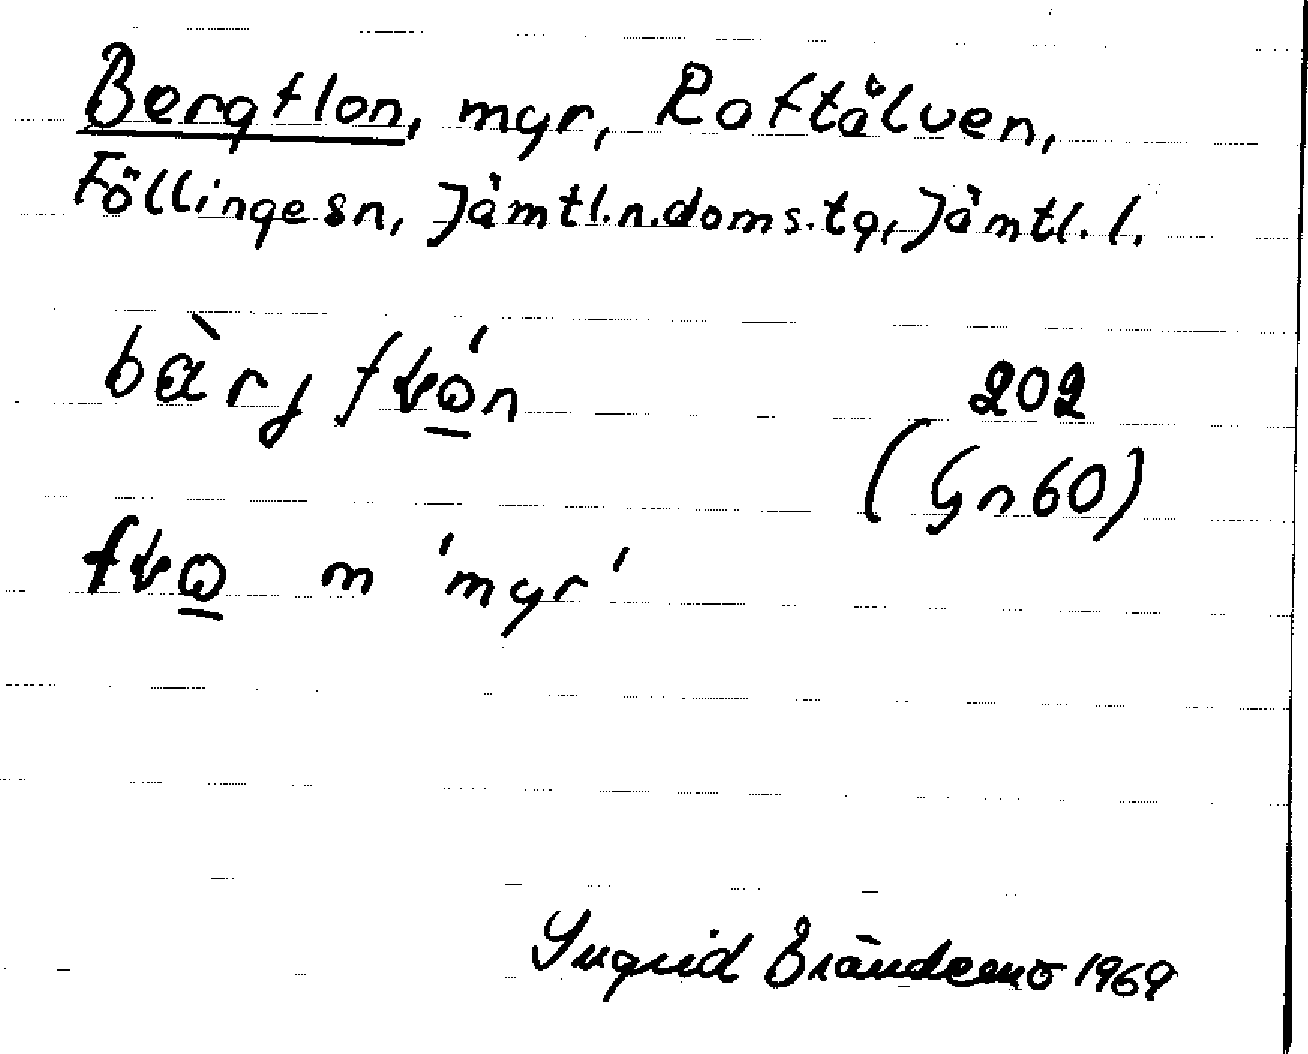 Bergflon, myr, Raftälven,
Föllinge sn, Jämtl.n.doms.tg, Jämtl. l.
202
(Gn 60)
m 'myr'
Ingrid Brändemo 1969